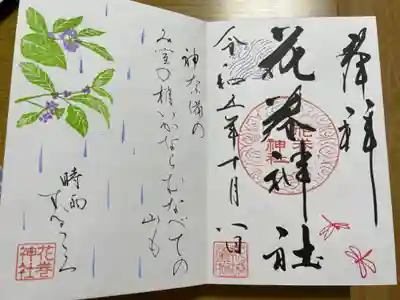 奉拝
花巻神社
花巻
神社
令和五年十月八日
神奈備の
み室の梢いかならむなべての
山も
時雨
するころ
花巻
神社